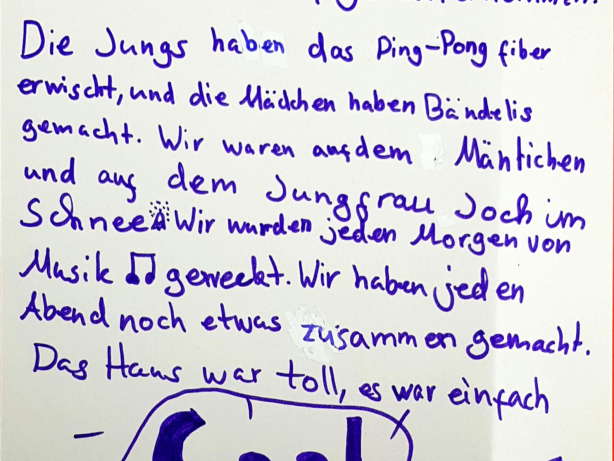 Die Jungs haben das Ping-Pong fiber
erwischt, und die Mädchen haben Bändelis
gemacht. Wir waren auf dem Mäntichen
und auf dem Jungfrau Joch im
Schnee Wir wurden jeden Morgen von
Musik ♫ geweckt. Wir haben jeden
Abend noch etwas zusammen gemacht.
Das Haus war toll, es war einfach